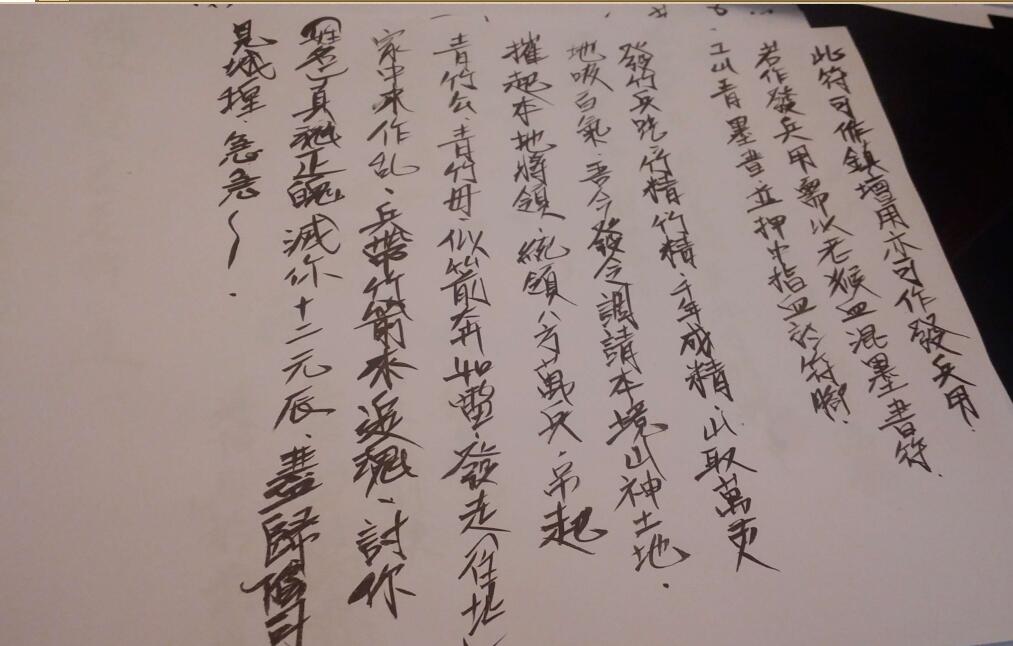 此符可作鎮壇用亦可作發兵用.
若作發兵用需以老猴血混墨書符.
青墨書立押中指血於符腳.
發竹兵咒、竹精竹精、千年成精、山取萬
地吸百氣、吾今發令調請本境山神土地.
摧起本地將領、統領八方萬兵、吊起
青竹公、青竹母、似箭奔如 發走往
家中來作乱、兵帶竹箭來追魂、討你
(姓名)真魂正魄滅你十二元辰、盡歸
見城 急急~.